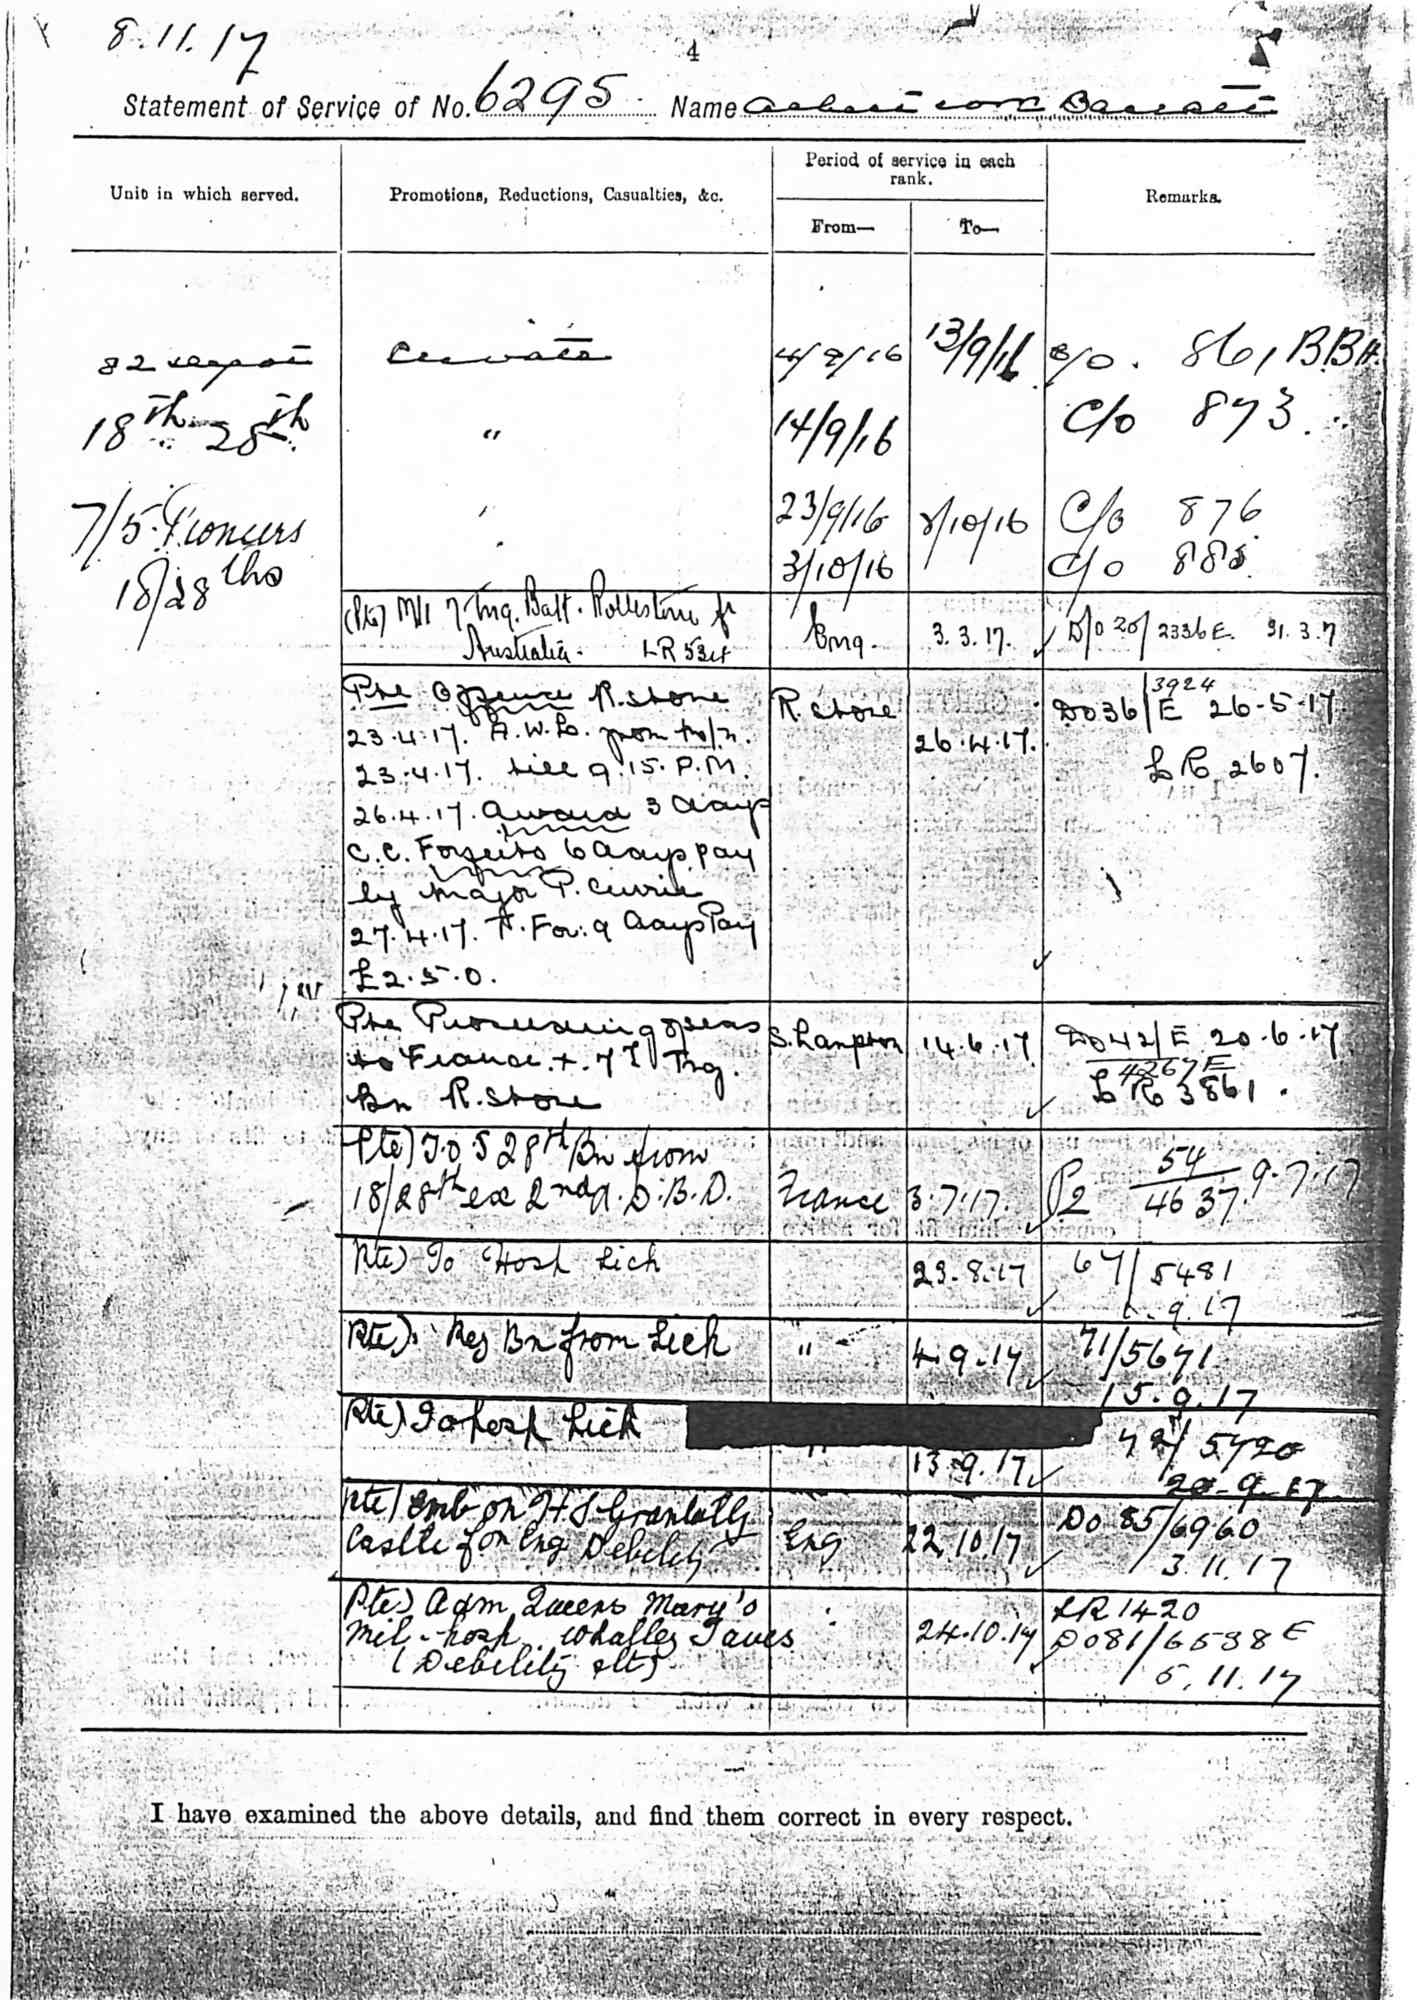 8.11.17
4
Statement of Service of No. 6295 Name
Unit in which served.
Promotions, Reductions, Casualties, &c.
Period of service in each rank.
From—
To—
Remarks.
82 Private 4/9/16 13/9/16 c/o. 861, BBH.
18th 28th " 14/9/16 C/o 873.
7/5 Pioneers 23/9/16 C/o 876
18/28ths 3/10/16 C/o
(Pte) M/I 7 Trng. Batt. Rollestone fr Eng. 3.3.17. D/O 20/2336E. 31.3.7
Australia.
Pte Offence R.stone R. stone DO36/3924E 26-5-17.
23.4.17. A.W.L. from 26.4.17.
23.4.17. till 9.15. P.M. LR 2607.
26.4.17. Award 3 days
C.C. Forfeits 6 days pay
by Major P. Currie
27.4.17. T. For: 9 days Pay
£2.5.0.
Pte Proceeding o/seas S.hampton 14.6.17. DO42/E 20.6.17
to France. 7 Trng. 4267E
Bn R.stone LR 3861.
Pte) T.O.S 28th Bn from
18/28th ex 2nd A.D.B.D. France 3.7.17. P2 54/4637. 9.7.17
Pte) To Hosp Sick 23.8.17 67/5481
9.17
Pte). Rej Bn from Sick " 4.9.17 71/5671
15.9.17
Pte) To hosp Sick "
13.9.17 20-9-17
Pte) emb on H.S. Grantully DO 85/6960
Castle for Eng Debility Eng 22.10.17 3.11.17
Pte) adm Queens Mary's LR 1420
Mil. hosp. Whalley 24.10.17 DO81/6538E
(Debility slt) 5.11.17
I have examined the above details, and find them correct in every respect.